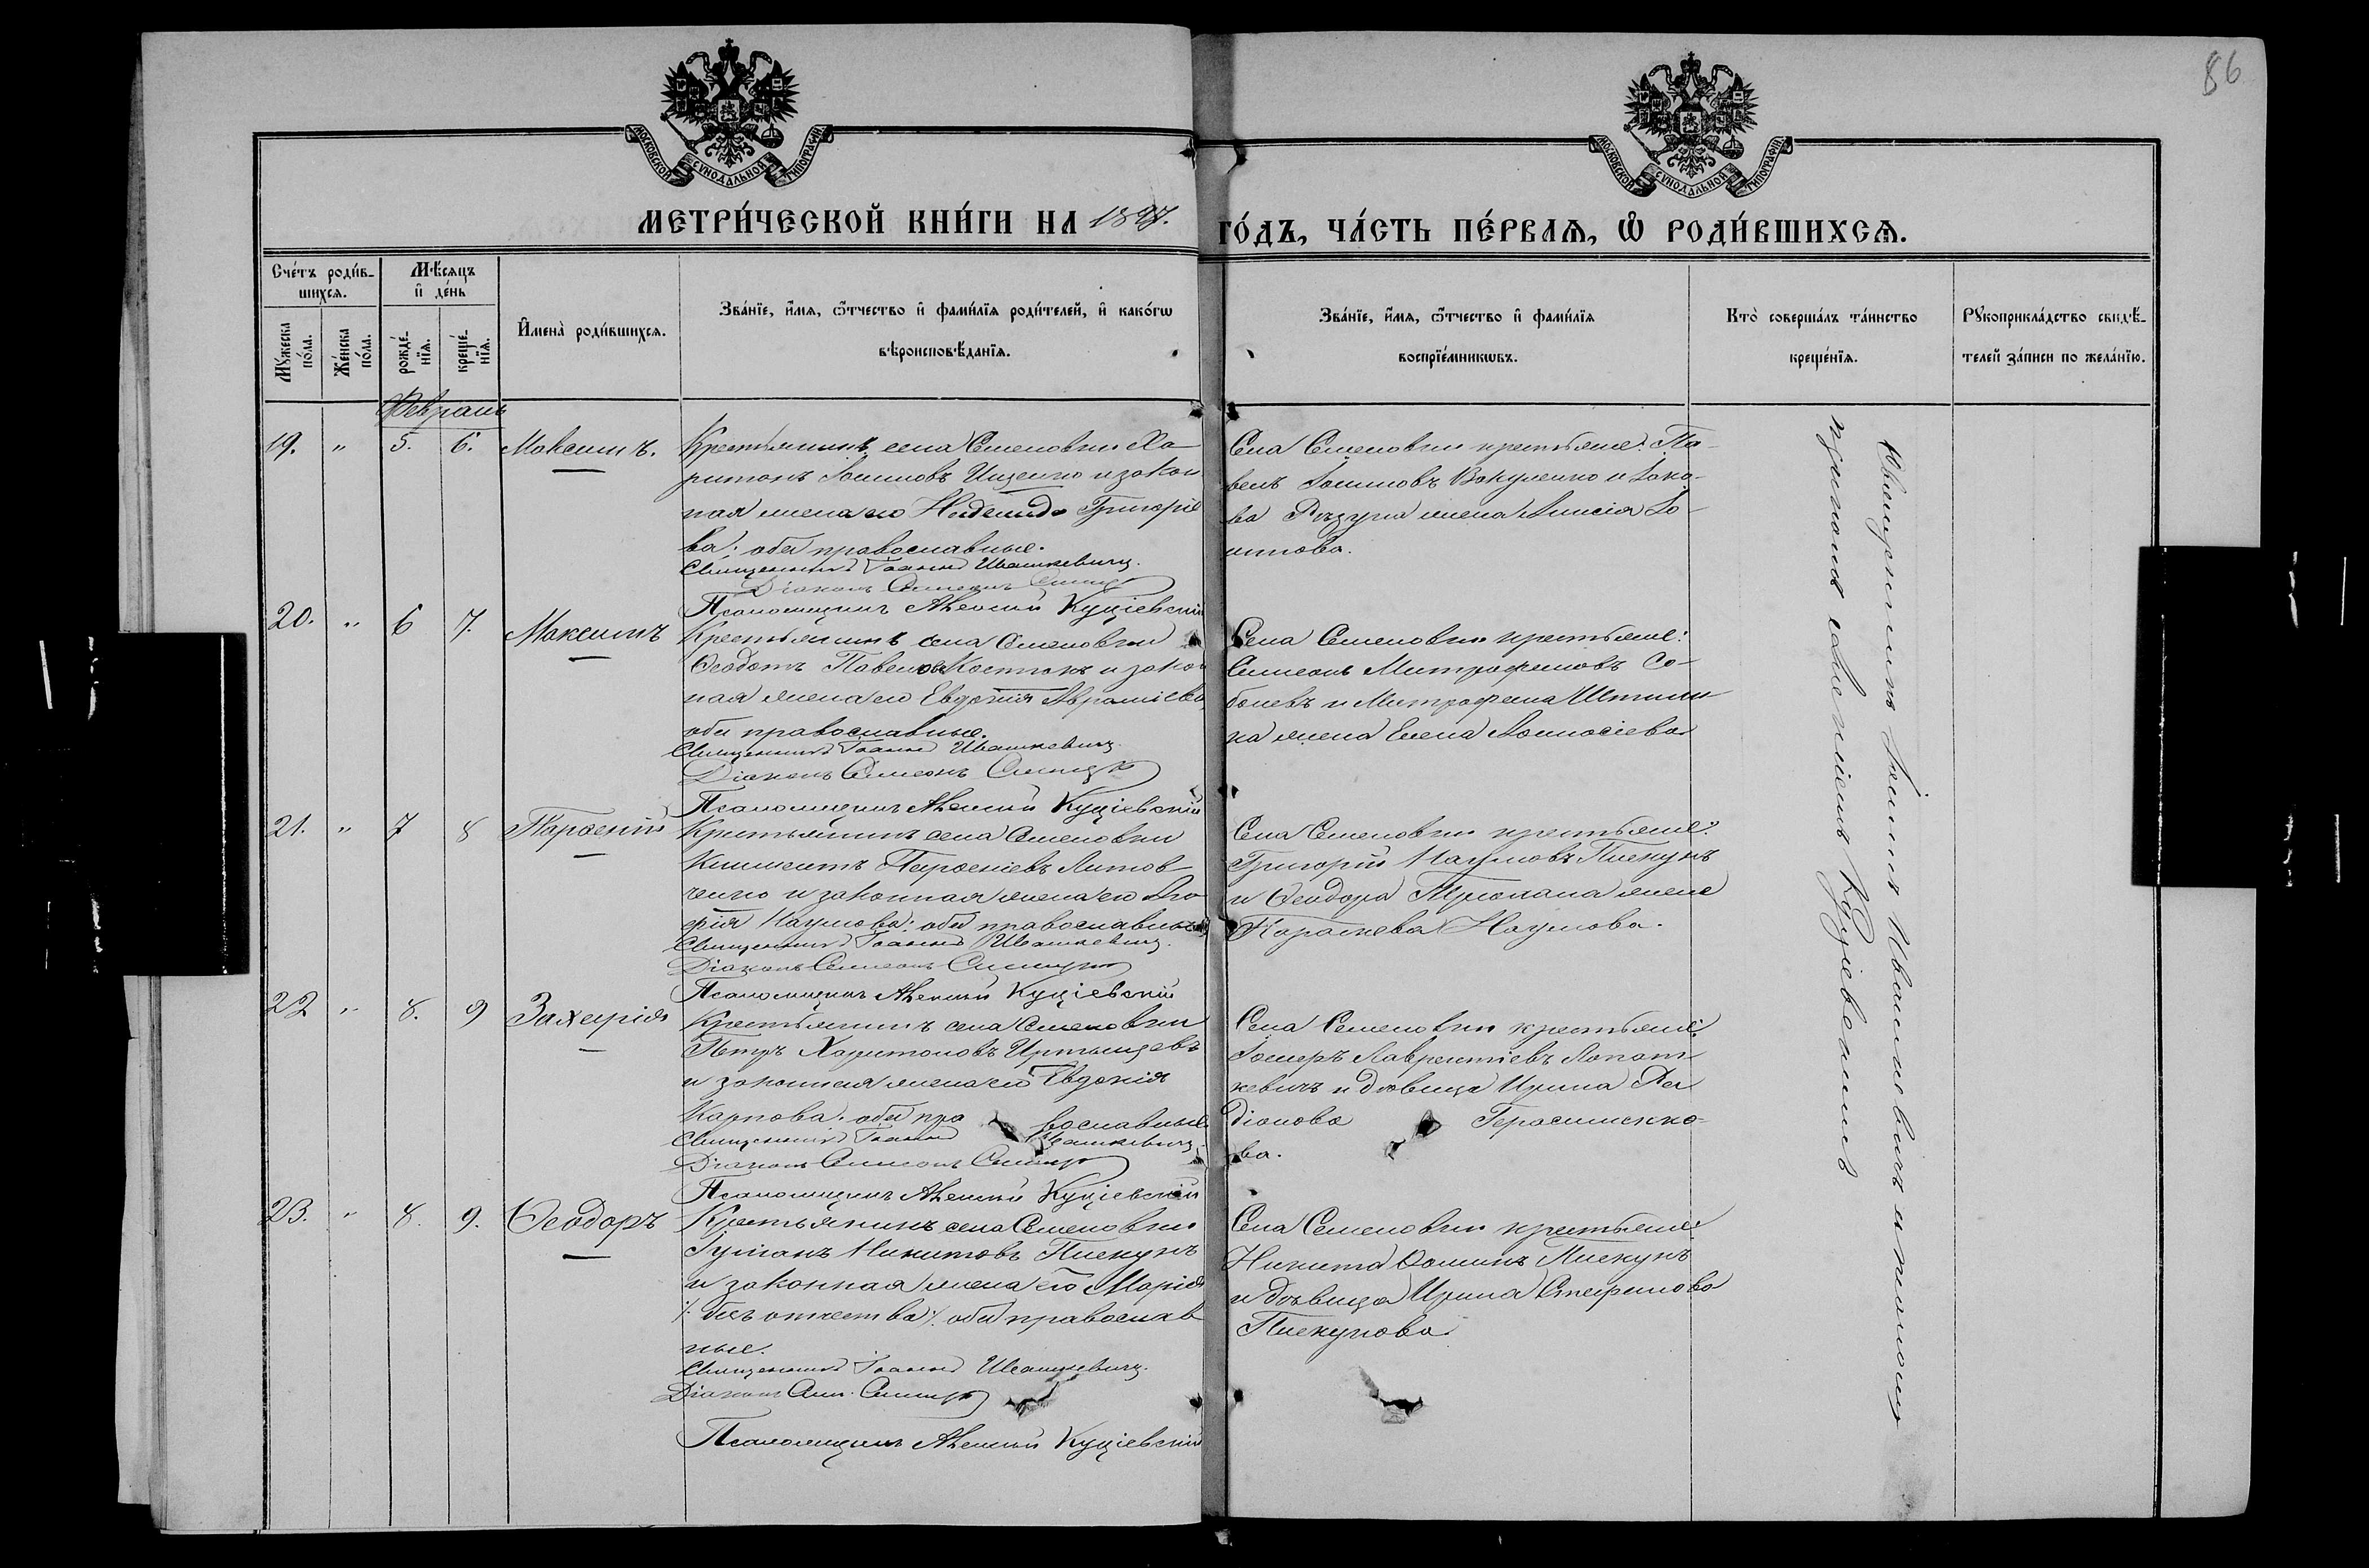 86
МОСКОВСКОЙ СУНОДАЛЬНОЙ ТИПОГРАФІИ
МОСКОВСКОЙ СУНОДАЛЬНОЙ ТИПОГРАФІИ
МЕТРИ́ЧЕСКОЙ КНИ́ГИ НА 1897.
ГО́ДЪ, ЧА́СТЬ ПЕ́РВАЯ, Ѽ РОДИ́ВШИХСЯ.
Сче́тъ роди́в-
шихся.
Мѣ́сяцъ
и де́нь
Му́жеска по́ла.
Же́нска по́ла.
рожде́-нїя.
креще́-нїя.
Имена̀ роди́вшихся.
Зва́нїе, и́мя, ѻ҆́тчество и фами́лїя роди́телей, и како́гѡ
вѣроисповѣ́данїя.
Зва́нїе, и́мя, ѻ҆́тчество и фами́лїя
воспрїе́мникѡвъ.
Кто̀ соверша́лъ та́инство
креще́нїя.
Рукоприкла́дство свидѣ́-
телей за́писи по жела́нїю.
Февраль
19. " 5. 6. Максимъ.
Крестьянинъ села Семеновки Ха-
ритонъ Іоанновъ Ищенко и закон
ная жена его Надежда Григоріе
ва; оба православные.
Священникъ Іоаннъ Ивашкевичъ.
Діаконъ Симеонъ
Псаломщикъ Алексій Куціевскій
Села Семеновки крестьяне: Па-
велъ Іоанновъ Вакуленко и Іако-
ва жена Анисія Іо-
аннова.
20. " 6 7. Максимъ
Крестьянинъ села Семеновки
Ѳеодотъ Павловъ и закон
ная жена его Евдокія Авраміева
оба православные.
Священникъ Іоаннъ Ивашкевичъ
Діаконъ Симеонъ
Псаломщикъ Алексій Куціевскій
Села Семеновки крестьяне:
Симеонъ Митрофановъ Со-
болевъ и Митрофана
ка жена Елена
21. " 7 8 Парѳеній
Крестьянинъ села Семеновки
Климентъ Парѳеніевъ Литов-
ченко и законная жена его
Наумова: оба православные
Священникъ Іоаннъ Ивашкевичъ.
Діаконъ Симеонъ
Псаломщикъ Алексій Куціевскій
Села Семеновки крестьяне:
Григорій Наумовъ Пискунъ
и Ѳеодора жена
Параскева Наумова.
22 " 8. 9 Захарія
Крестьянинъ села Семеновки
Петръ Харитоновъ
и законная жена его Евдокія
Карпова: оба православные
Священникъ Іоаннъ Ивашкевичъ
Діаконъ Симеонъ
Псаломщикъ Алексій Куціевскій
Села Семеновки крестьяне:
Лаврентіевъ Лопат-
кевичъ и дѣвица Ирина Ра
діонова Герасименко-
ва.
23. " 8. 9. Ѳеодоръ
Крестьянинъ села Семеновки
Іуліанъ Никитовъ Пискунъ
и законная жена его Марія
/: безъ отчества :/ оба православ
ные.
Священникъ Іоаннъ Ивашкевичъ.
Діаконъ Сим.
Псаломщикъ Алексій Куціевскій
Села Семеновки крестьяне:
Никита Ѳоминъ Пискунъ
и дѣвица Ирина Стефанова
Пискунова.
Священникъ Іоаннъ Ивашкевичъ и псаломщ
Куціевскимъ